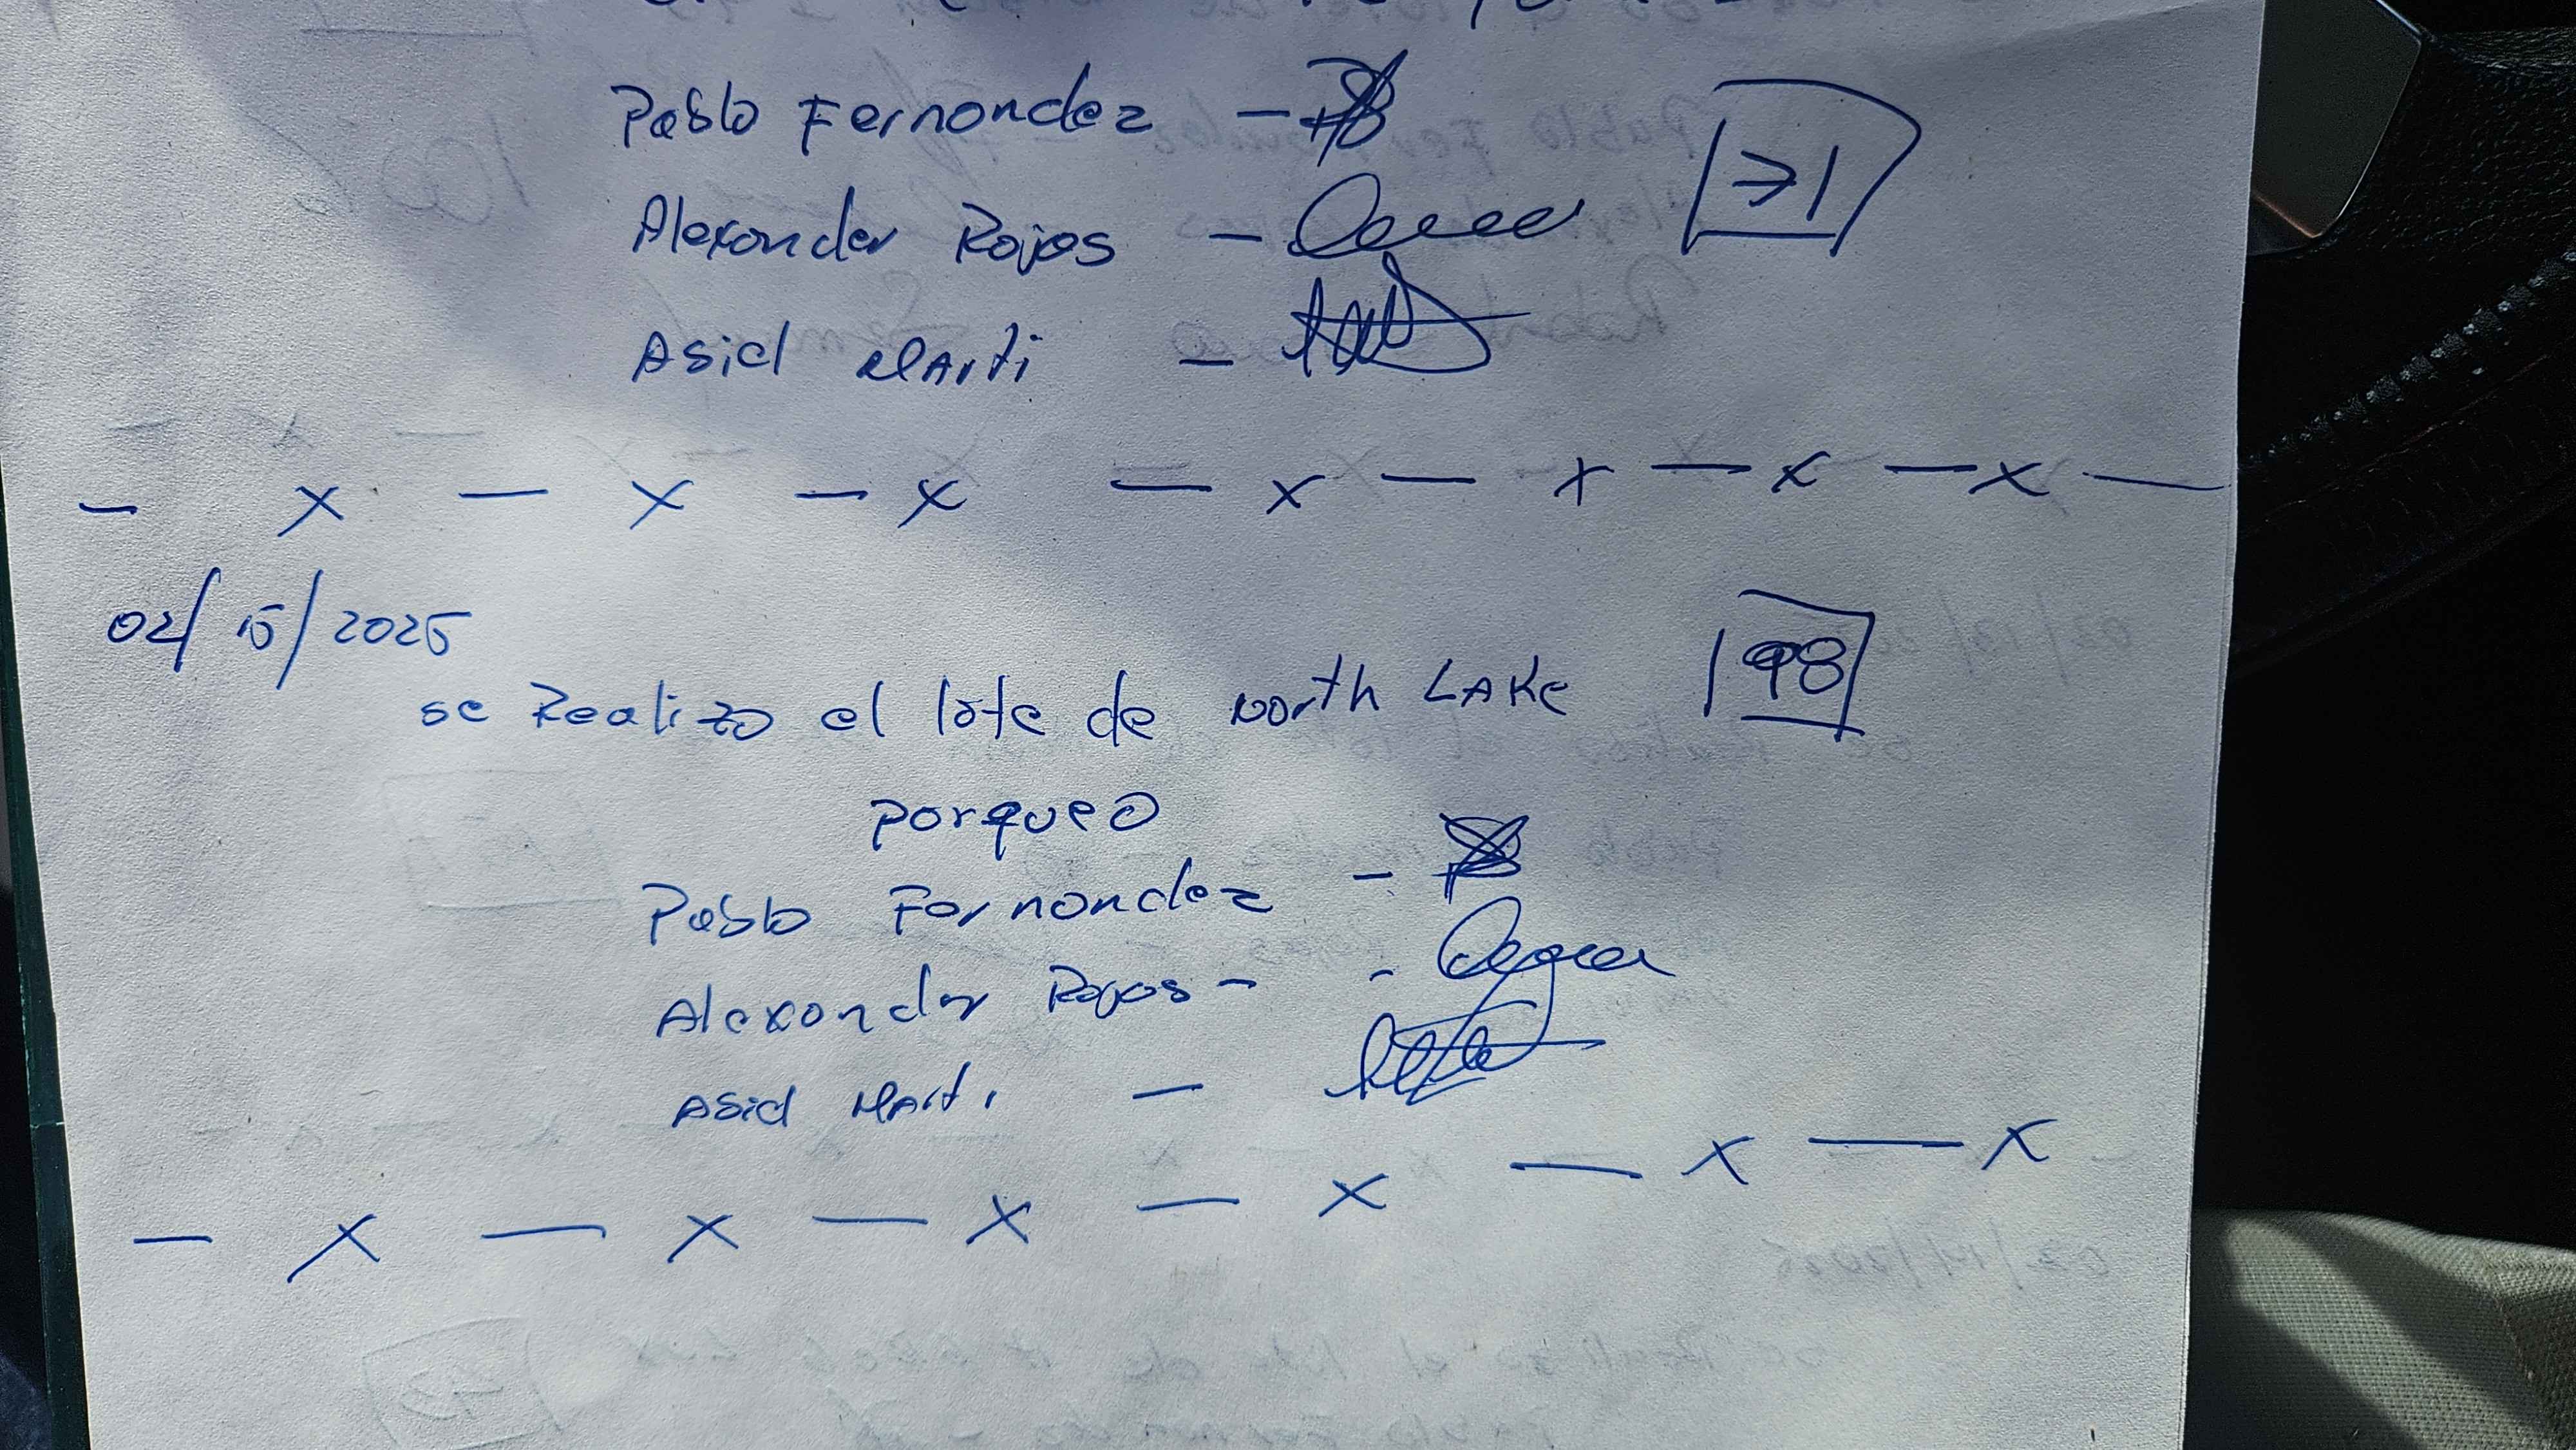 Pablo Fernondez -
Alexonder Rojos -
Asiel Marti -
- x - x - x - x - x - x - x -
02/15/2025
se Realizo el lote de North LAKE 98
porqueo
Pablo Fernondez -
Alexonder Rojos - -
Asiel Marti -
- x - x - x - x - x - x